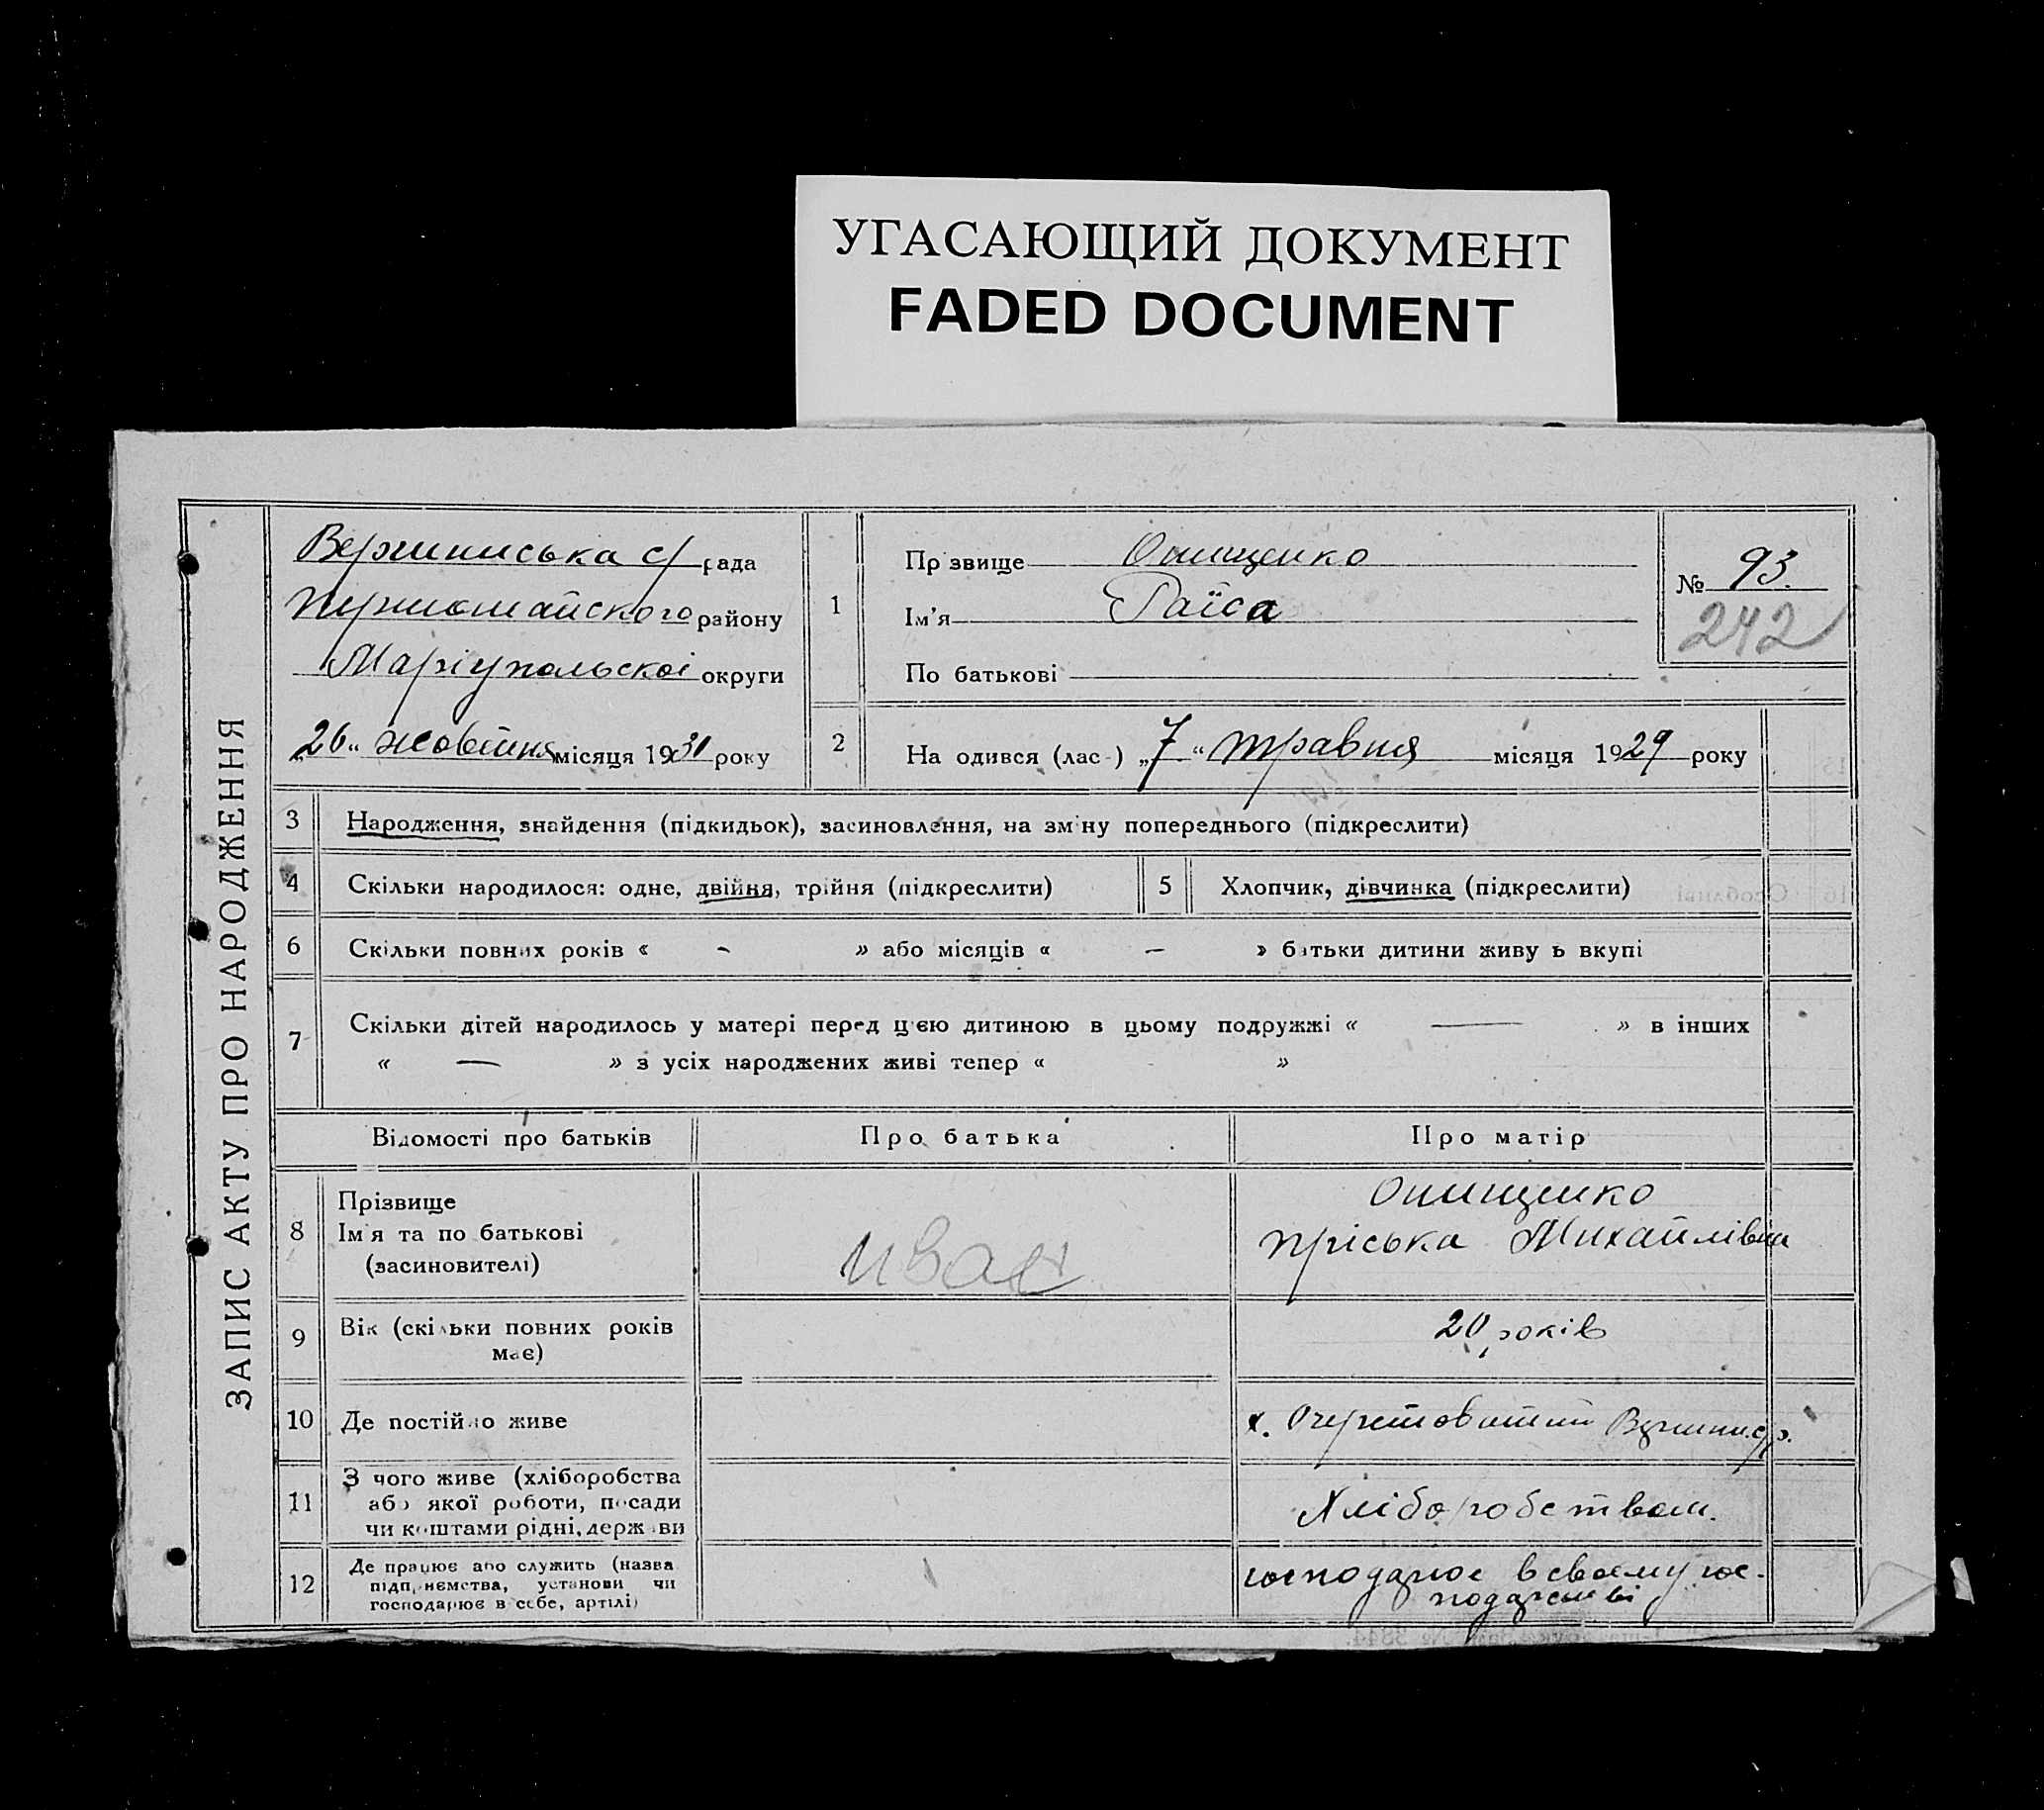 УГАСАЮЩИЙ ДОКУМЕНТ
FADED DOCUMENT
ЗАПИС АКТУ ПРО НАРОДЖЕННЯ
Вершинська с/рада
Першомайского району
Маріупольскоі округи
„26“ жовтня місяця 1931 року
1
Прізвище Онищенко
Ім'я Раїса
По батькові
№ 93.
242
2
Народився (лас-) „7“ травня місяця 1929 року
3 Народження, знайдення (підкидьок), засиновлення, на зміну попереднього (підкреслити)
4 Скільки народилося: одне, двійня, трійня (підкреслити)
5 Хлопчик, дівчинка (підкреслити)
6 Скільки повних років « – » або місяців « – » батьки дитини живуть вкупі
7 Скільки дітей народилось у матері перед цією дитиною в цьому подружжі « — » в інших
« — » з усіх народжених живі тепер « »
Відомості про батьків
Про батька
Про матір
8
Прізвище
Ім'я та по батькові
(засиновителі)
Иван
Онищенко
Пріська Михайлівна
9
Вік (скільки повних років
має)
20 років
10 Де постійно живе
х. Очеретоватий Вершин. с/р.
11
З чого живе (хліборобства
або якої роботи, посади
чи коштами рідні, держави
Хліборобством.
12
Де працює або служить (назва
підприємства, установи чи
господарює в себе, артілі)
господарює в своєму гос-
подарстві